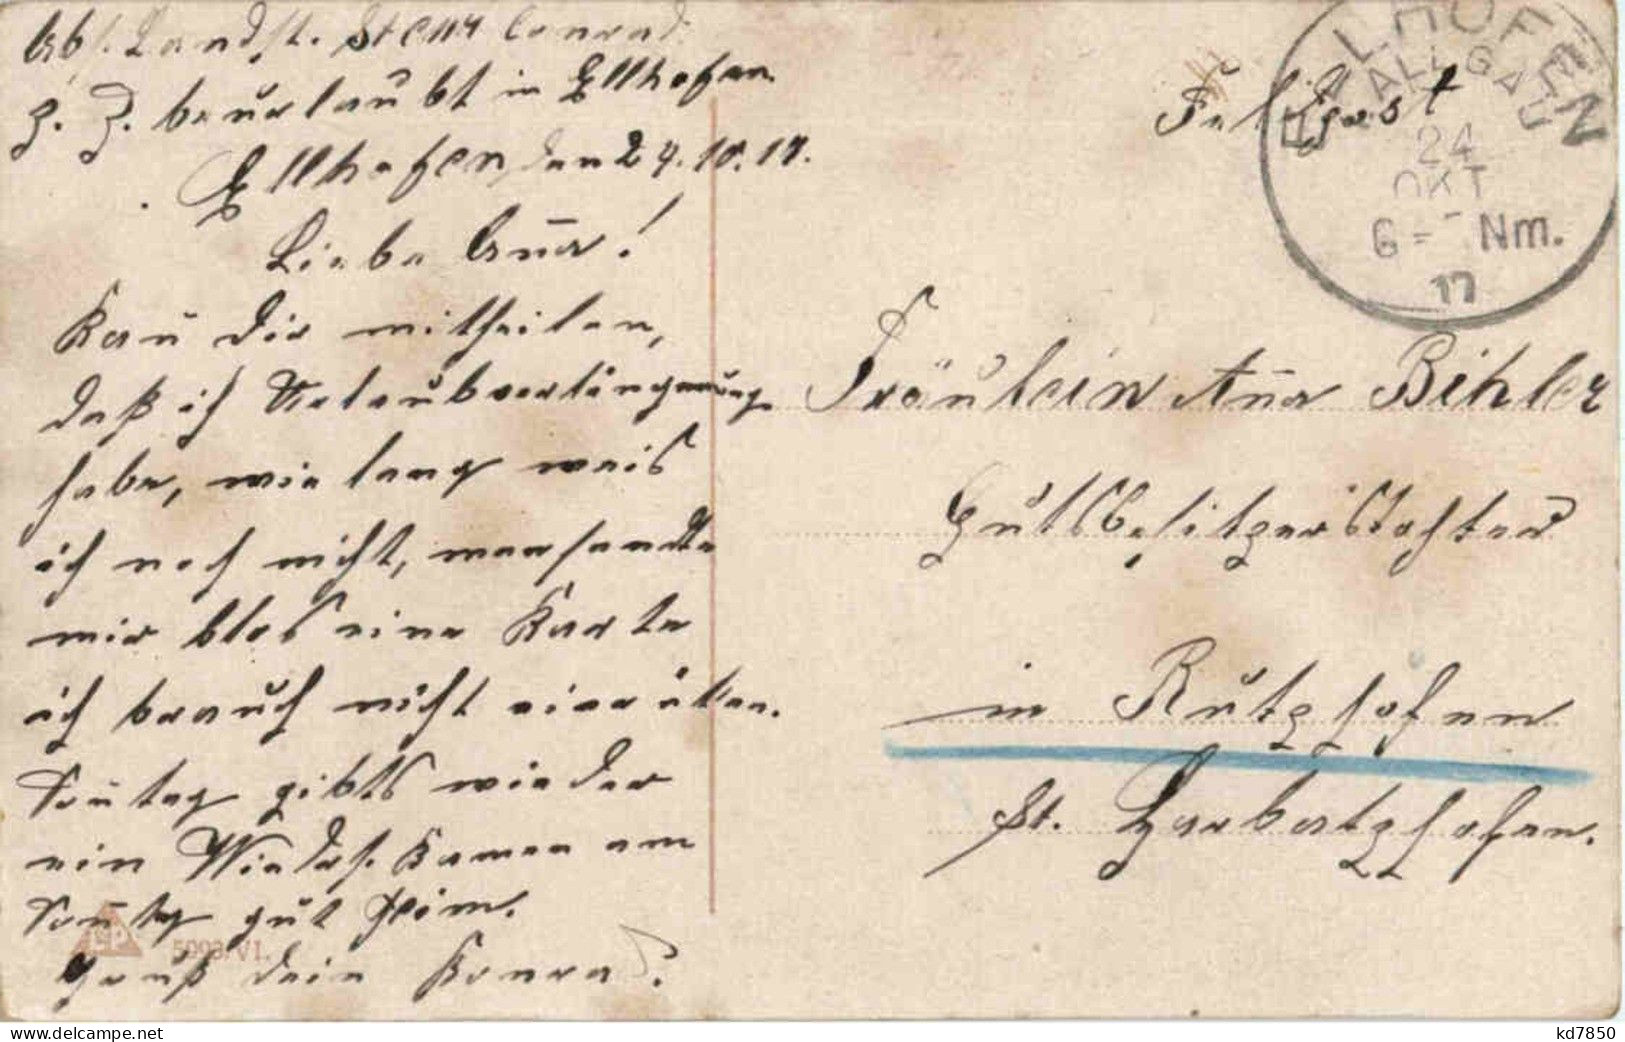 Abs. Landst. Steur Conrad
z. Z. beurlaubt in Ellhofen
Ellhofen, den 24.10.17.
Liebe Anna!
Kan̄ dir mittheilen,
daß ich Urlaubverlängerung
habe, wie lang weis
ich noch nicht, man sandte
mir blos eine Karte
ich brauch nicht einrücken.
Son̄tag gibts wieder
ein Wiederseh. Komen am
Son̄tag gut Heim.
Gruß dein Konrad.
5093/VI.
Feldpost
ELLHOFEN
ALLGÄU
24
OKT
6 - 7 Nm.
17
Fräulein An̄a Bihler
Gutsbesitzerstochter
in Rutzhofen
St. Harbatzhofen.
kd7850